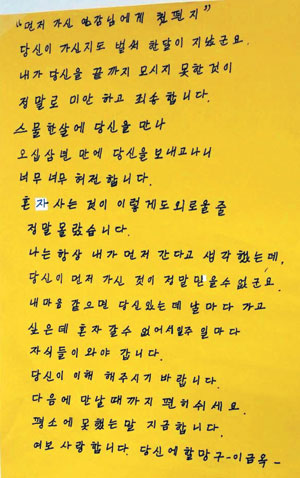 "먼저 가신 영감님에게 첫편지"
당신이 가신지도 벌써 한달이 지났군요.
내가 당신을 끝까지 모시지 못한것이
정말로 미안 하고 죄송 합니다.
스물한살에 당신을 만나
오십삼년 만에 당신을 보내고나니
너무 너무 허전합니다.
혼자 사는 것이 이렇게도 외로울 줄
정말 몰랐습니다.
나는 항상 내가 먼저 간다고 생각 했는데,
당신이 먼저 가신 것이 정말 믿을수 없군요.
내마음 같으면 당신있는데 날마다 가고
싶은데 혼자 갈수 없어서 일주일마다
자식들이 와야 갑니다.
당신이 이해 해주시기 바랍니다.
다음에 만날 때까지 편히쉬세요.
평소에 못했는말 지금합니다.
여보 사랑합니다. 당신에 할망구-이금옥-